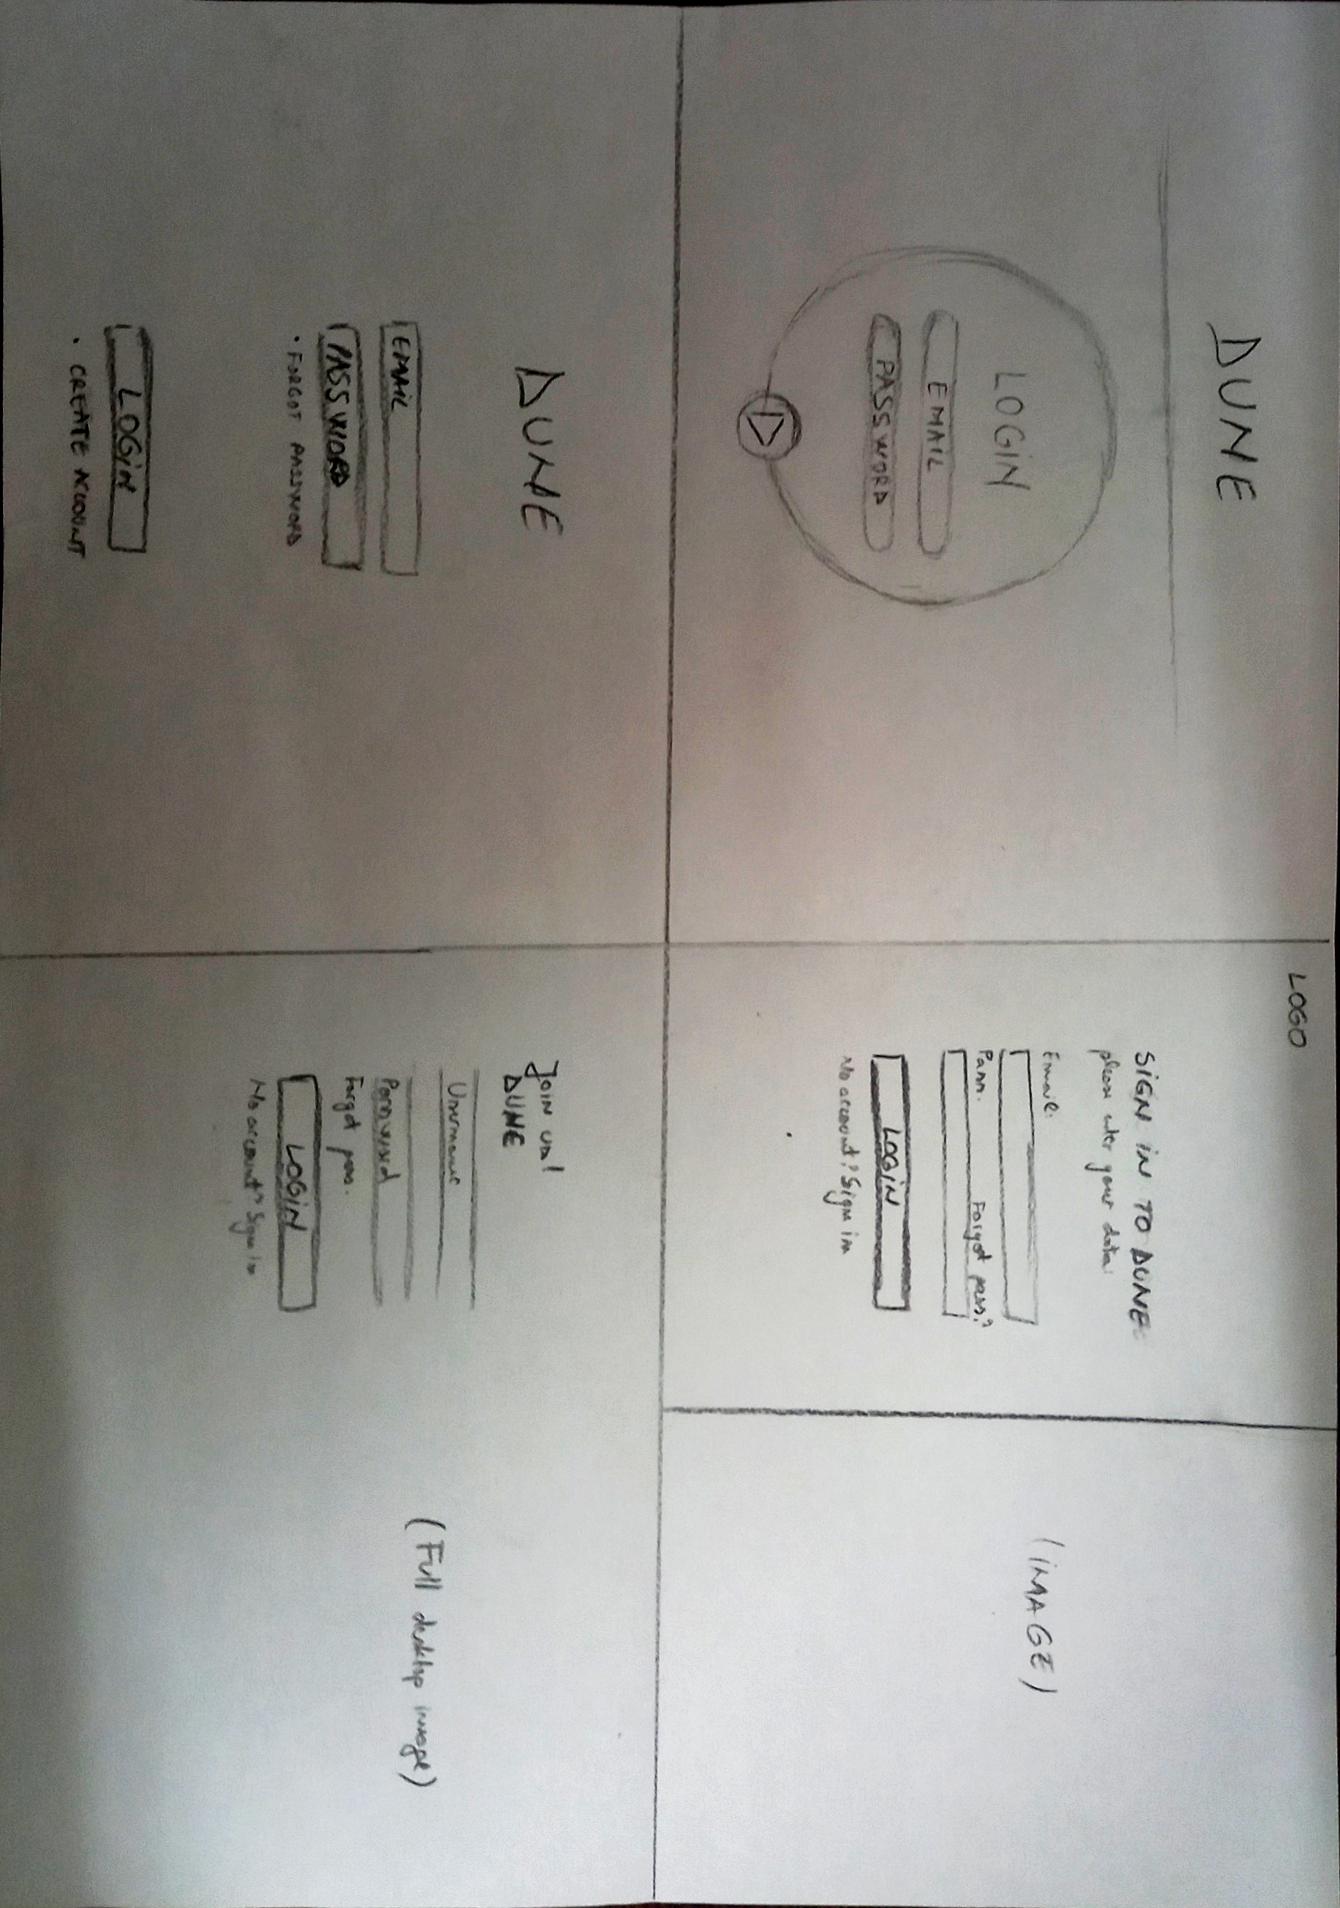 DUNE
LOGIN
EMAIL
PASSWORD
LOGO
SIGN IN TO DUNE
please enter your data:
Email:
Pass. Forgot pass?
LOGIN
No account? Sign in
(IMAGE)
DUNE
EMAIL
PASSWORD
• FORGOT PASSWORD
LOGIN
• CREATE ACCOUNT
JOIN US!
DUNE
Username
Password
Forgot pass.
LOGIN
No account? Sign in
(Full desktop image)